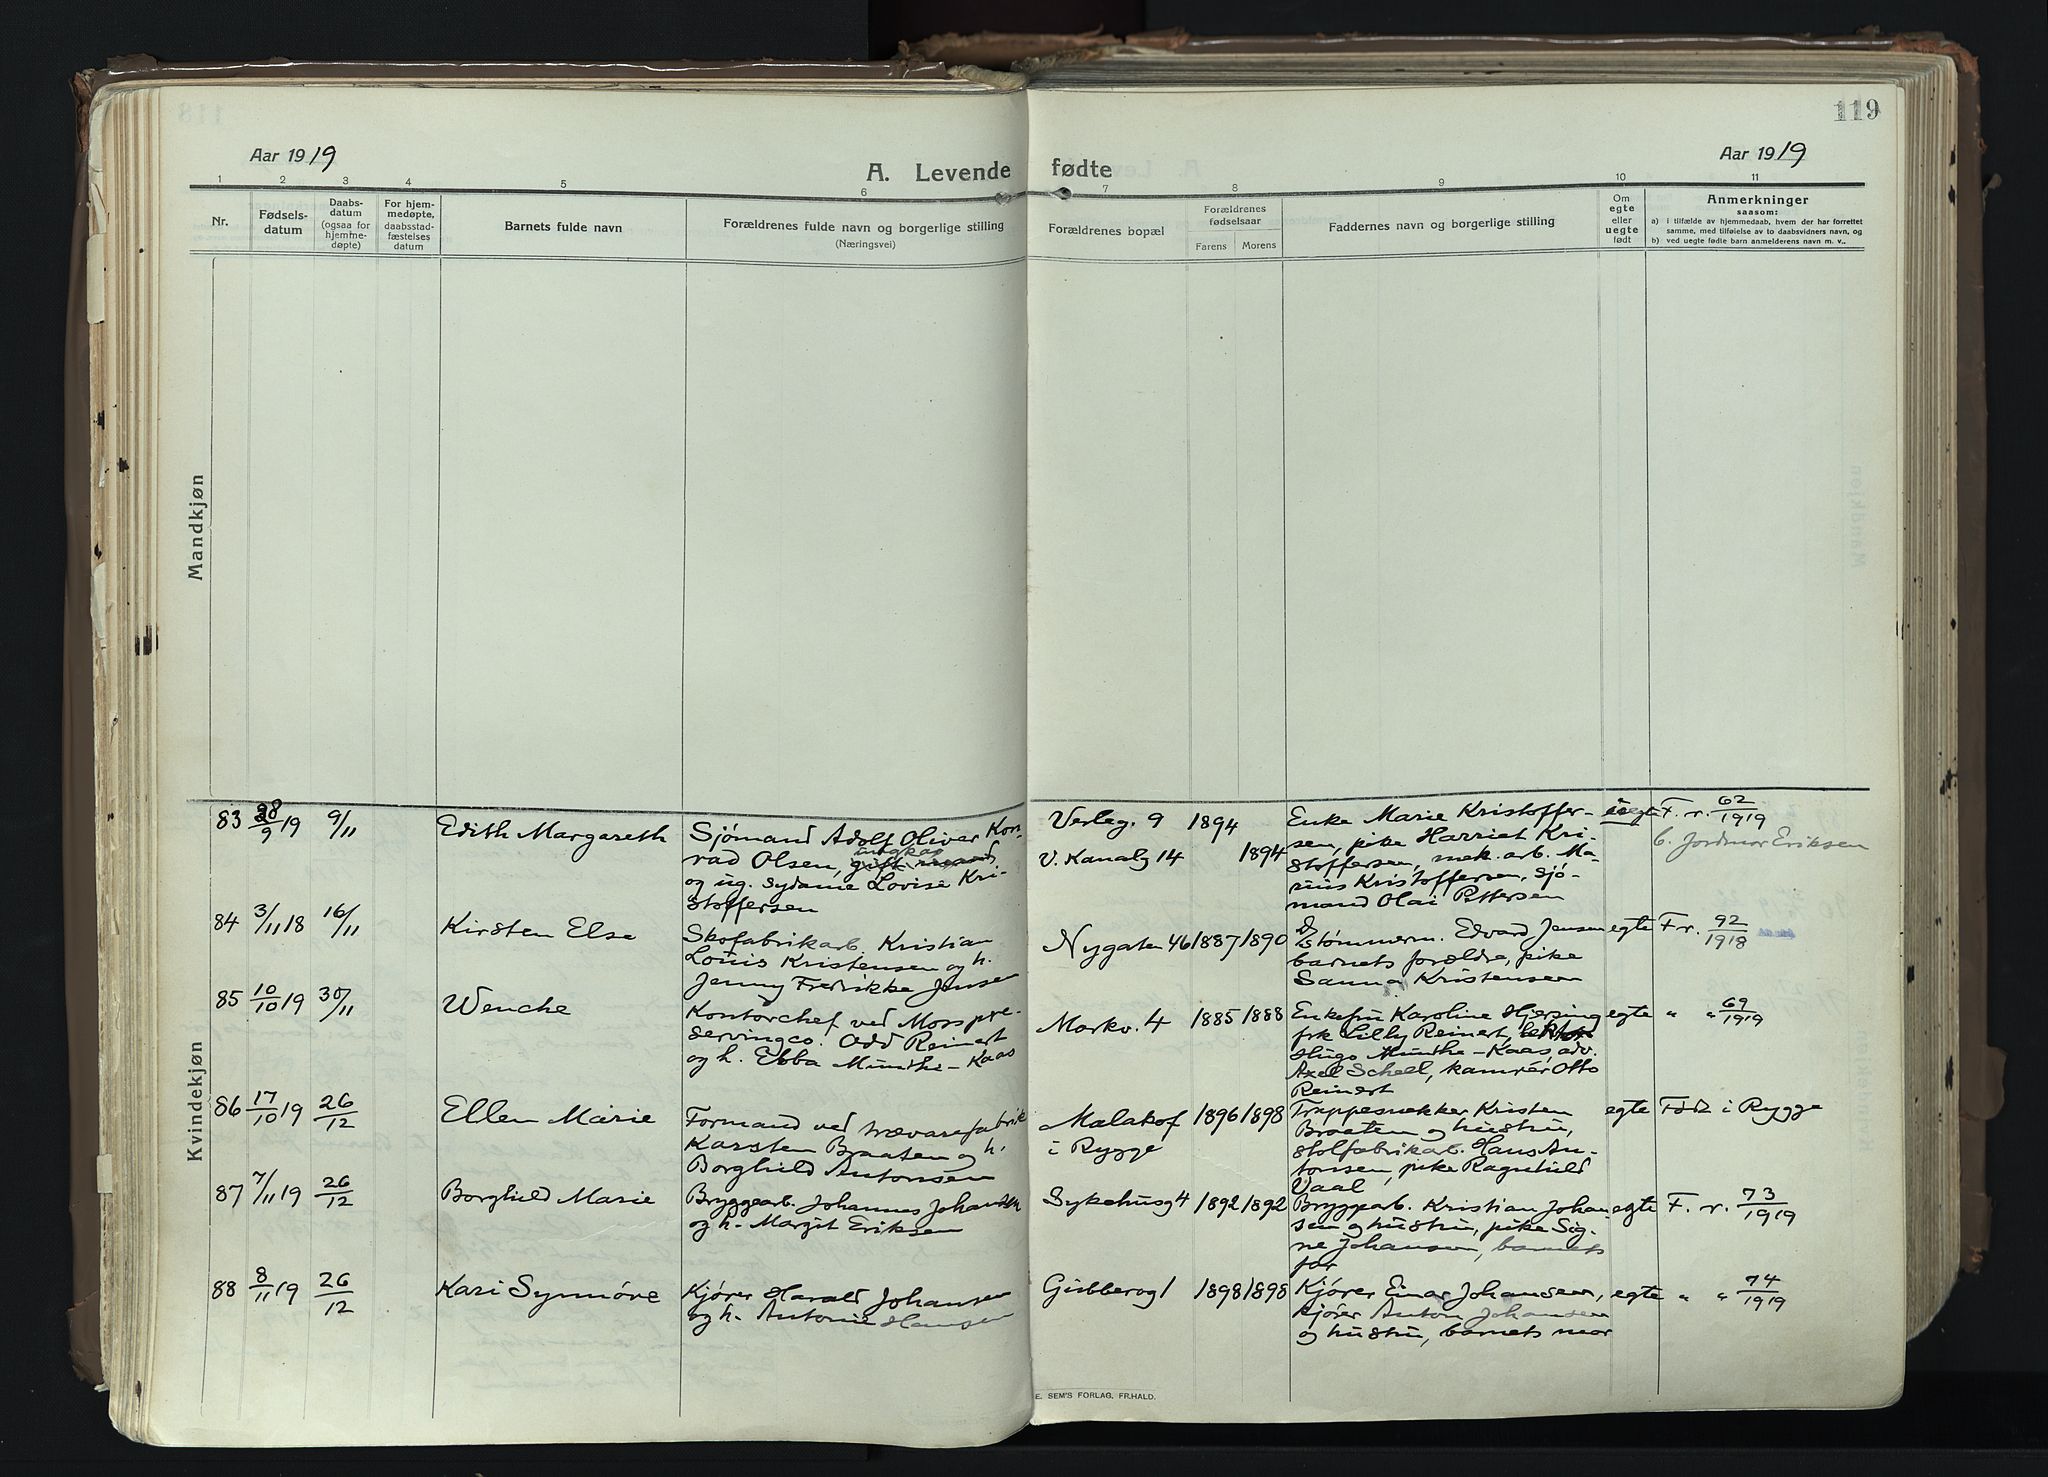 119
Aar 1919
A. Levende fødte
Aar 1919
1 2 3 4 5 6 7 8 9 10 11
Nr.
Fødsels-
datum
Daabs-
datum
(ogsaa for
hjemme-
døpte)
For hjem-
medøpte,
daabsstad-
fæstelses
datum
Barnets fulde navn
Forældrenes fulde navn og borgerlige stilling
(Næringsvei)
Forældrenes bopæl
Forældrenes
fødselsaar
Farens Morens
Faddernes navn og borgerlige stilling
Om
egte
eller
uegte
født
Anmerkninger
saasom:
a) i tilfælde av hjemmedaab, hvem der har forrettet
samme, med tilføielse av to daabsvidners navn, og
b) ved uegte fødte barn anmelderens navn m. v..
Mandkjøn
Kvindekjøn
83 28/9 19 9/11
Edith Margareth
Sjømand Adolf Oliver Kon-
rad Olsen, ungkar
og ug. sydame Lovise Kri-
stoffersen
Verleg. 9 1894
V. Kanalg 14 1894
Enke Marie Kristoffer-
sen, pike Harriet Kri-
stoffersen, mek. arb. Ma-
rius Kristoffersen, sjø-
mand Olai Pettersen
uegte
F. r. 62/1919
b. Jordmor Eriksen
84 3/11 18 16/11
Kirsten Else
Skofabrikarb. Kristian
Louis Kristensen og h.
Jenny Fredrikke Jensen
Nygaten 46 1887 1890
Tømmerm. Edvard Jensen
barnets forældre, pike
Sanna Kristensen
egte
F. r. 92/1918
85 10/10 19 30/11
Wenche
Kontorchef ved Moss pre-
servingco. Odd Reinert
og h. Ebba Munthe-Kaas
Markv. 4 1885 1888
Enkefru Karoline Hjersing
frk Lilly Reinert,
Hugo Munthe-Kaas, adv.
Axel Scheel, kamrér Otto
Reinert
egte
" " 69/1919
86 17/10 19 26/12
Ellen Marie
Formand ved trævarefabrik
Karsten Braaten og h.
Borghild Antonsen
Malakof
i Rygge
1896 1898
Trappesnekker Kristen
Braaten og hustru,
stolfabrikarb. Hans An-
tonsen, pike Ragnhild
Vaal
egte
Født i Rygge
87 7/11 19 26/12
Borghild Marie
Bryggearb. Johannes Johansen
og h. Margit Eriksen
Sykehusg 4 1892 1892
Bryggearb. Kristian Johan-
sen og hustru, pike Sig-
ne Johansen, barnets
far
egte
F. r. 73/1919
88 8/11 19 26/12
Kari Synnøve
Kjører Harald Johansen
og h. Antonie Hansen
Gubberog 1 1898 1898
Kjører Einar Johansen,
kjører Anton Johansen
og hustru, barnets mor
egte
" " 74/1919
E. SEM'S FORLAG, FR.HALD.